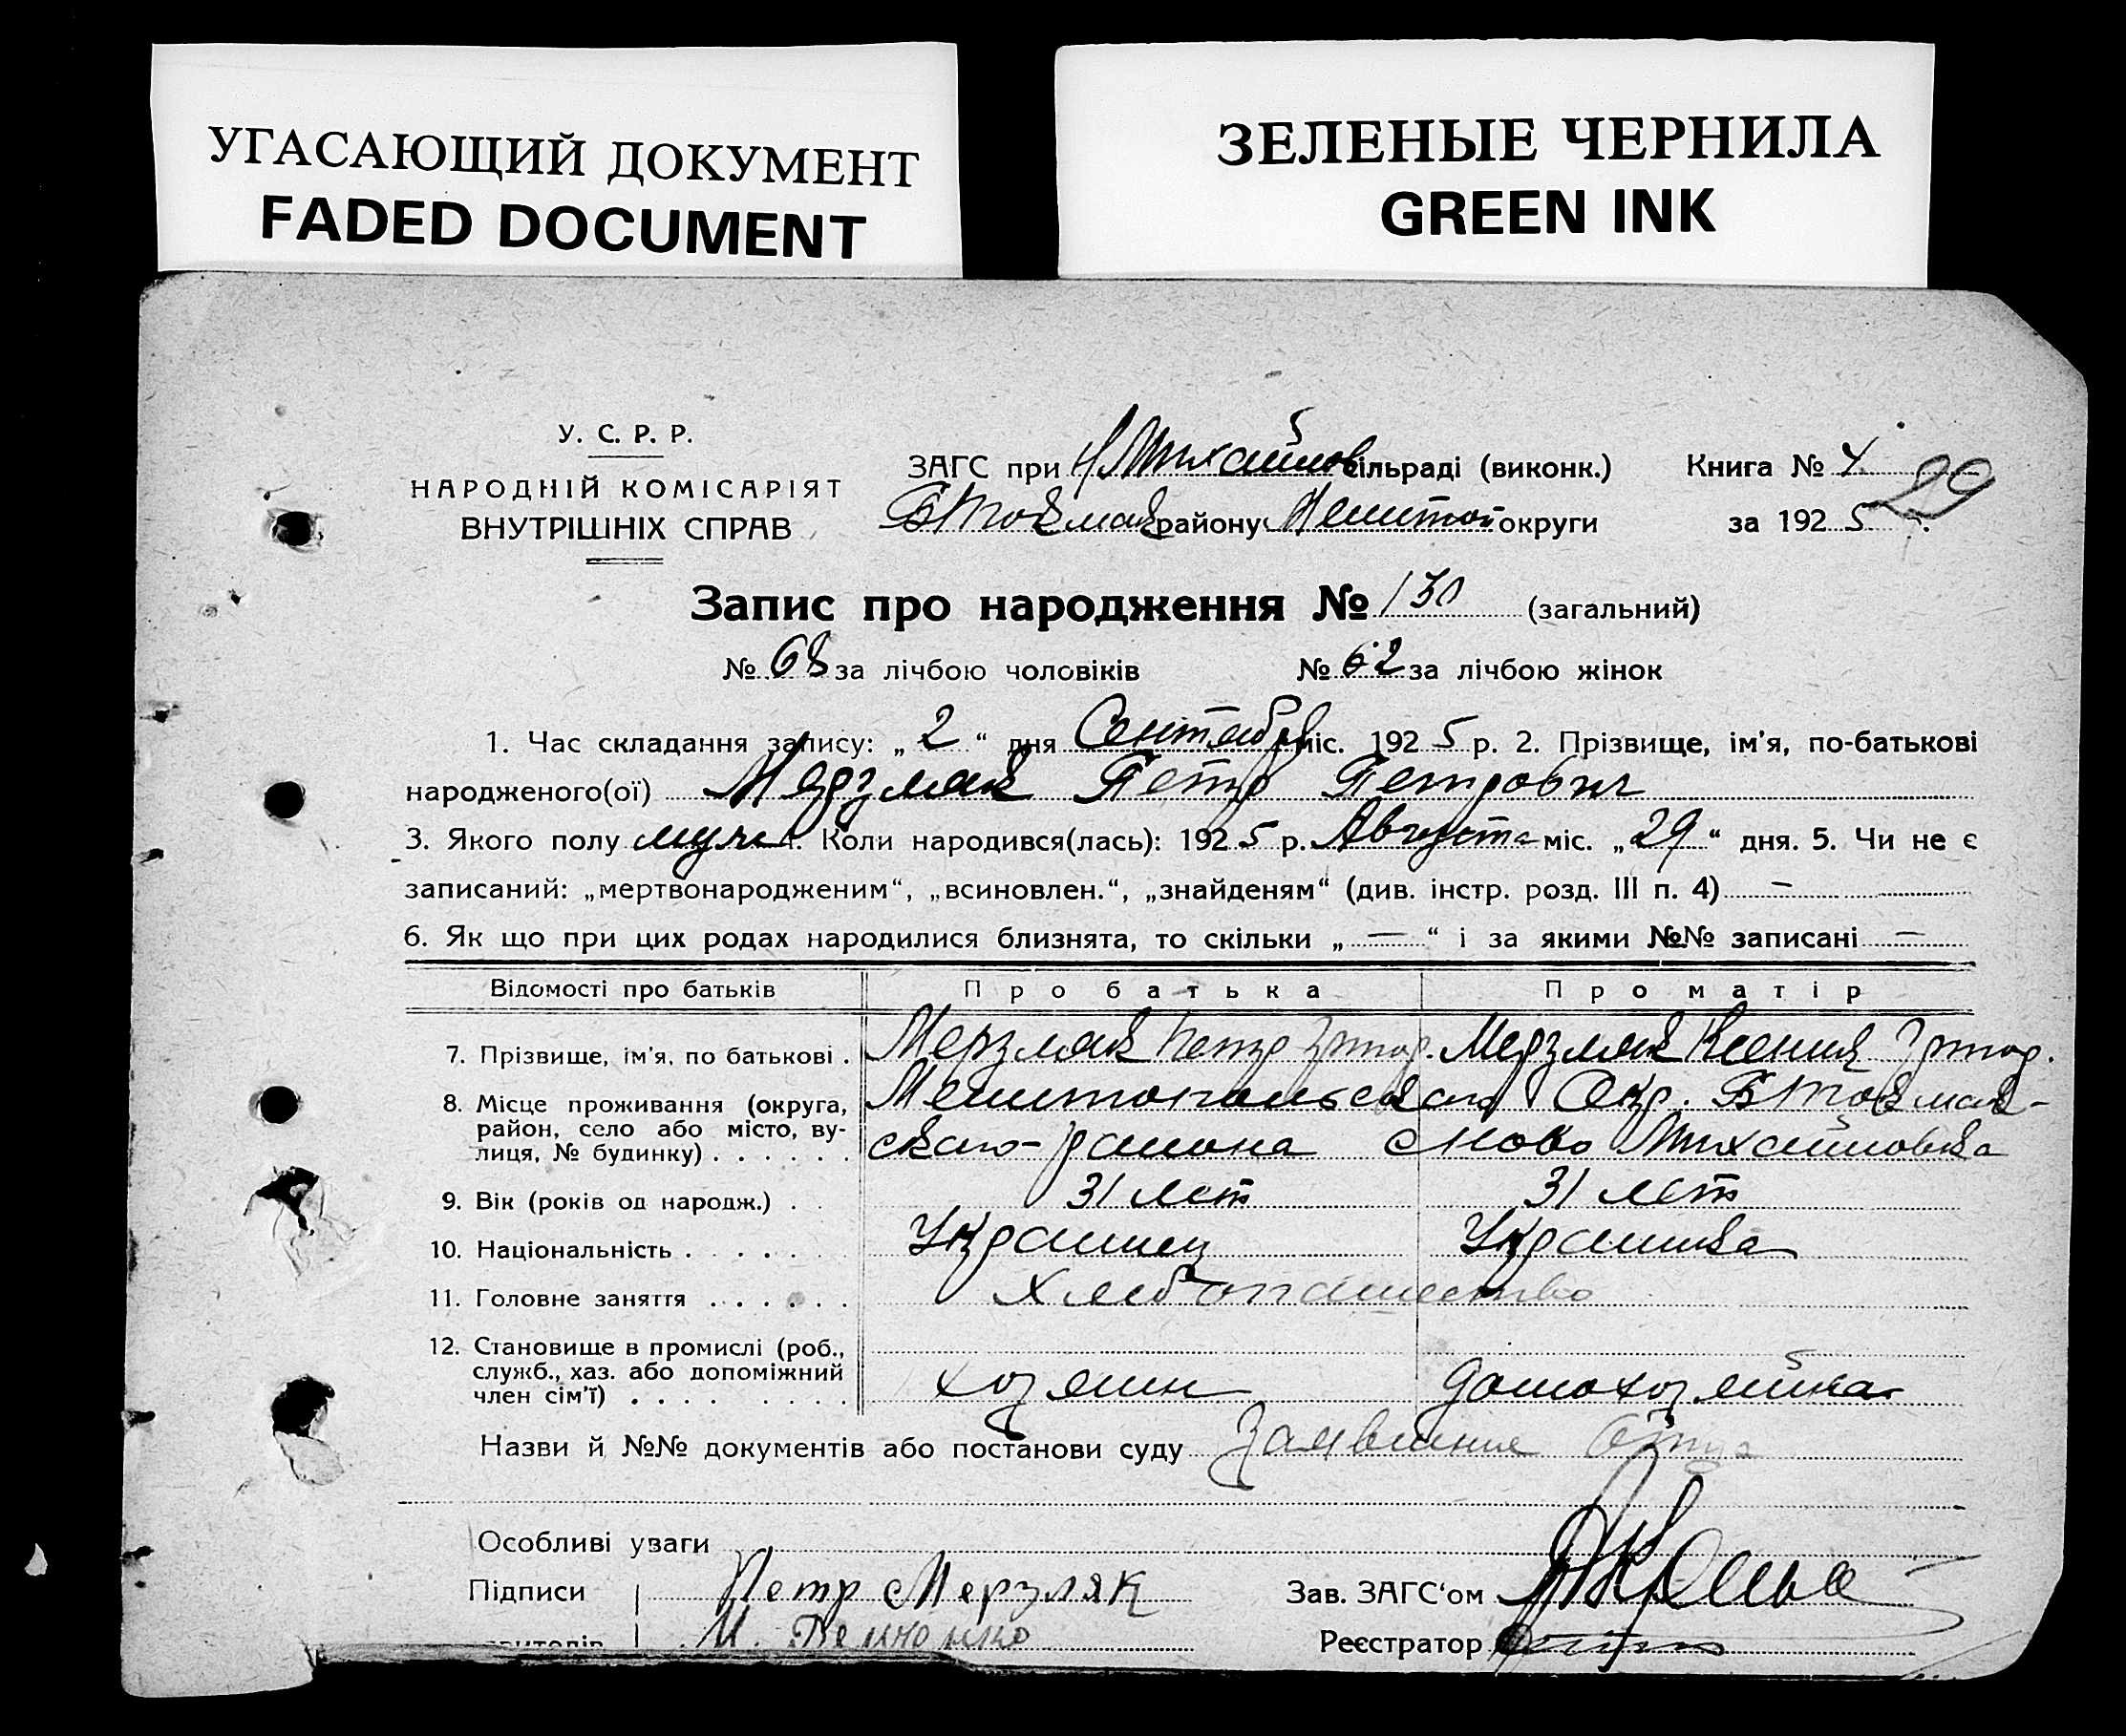 УГАСАЮЩИЙ ДОКУМЕНТ
FADED DOCUMENT
ЗЕЛЕНЫЕ ЧЕРНИЛА
GREEN INK
У. С. Р. Р.
НАРОДНІЙ КОМІСАРІЯТ
ВНУТРІШНІХ СПРАВ
ЗАГС при Н Михайлов сільраді (виконк.) Книга № 4
29
БТокмак району Мелитоп округи за 192 5 .
Запис про народження № 130 (загальний)
№ 68 за лічбою чоловіків № 62 за лічбою жінок
1. Час складання запису: „ 2 “ дня Сентября міс. 192 5 р. 2. Прізвище, ім’я, по-батькові
народженого(ої) Мерзляк Петр Петрович
3. Якого полу муж . Коли народився(лась): 192 5 р. Августа міс. „ 29 “ дня. 5. Чи не є
записаний: „мертвонародженим“, „всиновлен.“, „знайденям“ (див. інстр. розд. III п. 4) —
6. Як що при цих родах народилися близнята, то скільки „ — “ і за якими №№ записані —
Відомості про батьків Про батька Про матір
7. Прізвище, ім’я, по батькові . Мерзляк Петр Мерзляк Ксения
8. Місце проживання (округа, Мелитопольскаго Окр. БТокмак-
район, село або місто, ву- скаго района с Ново Михайловка
лиця, № будинку) . . . . . .
9. Вік (років од народж.) . . 31 лет 31 лет
10. Національність . . . . . . Украинец Украинка
11. Головне заняття . . . . . . Хлебопашество
12. Становище в промислі (роб.,
служб., хаз. або допоміжний
член сім’ї) . . . . . . . . хозяин домохозяйка
Назви й №№ документів або постанови суду Заявление Отца
Особливі уваги
Підписи Петр Мерзляк Зав. ЗАГС‘ом
И. Демченко Реєстратор